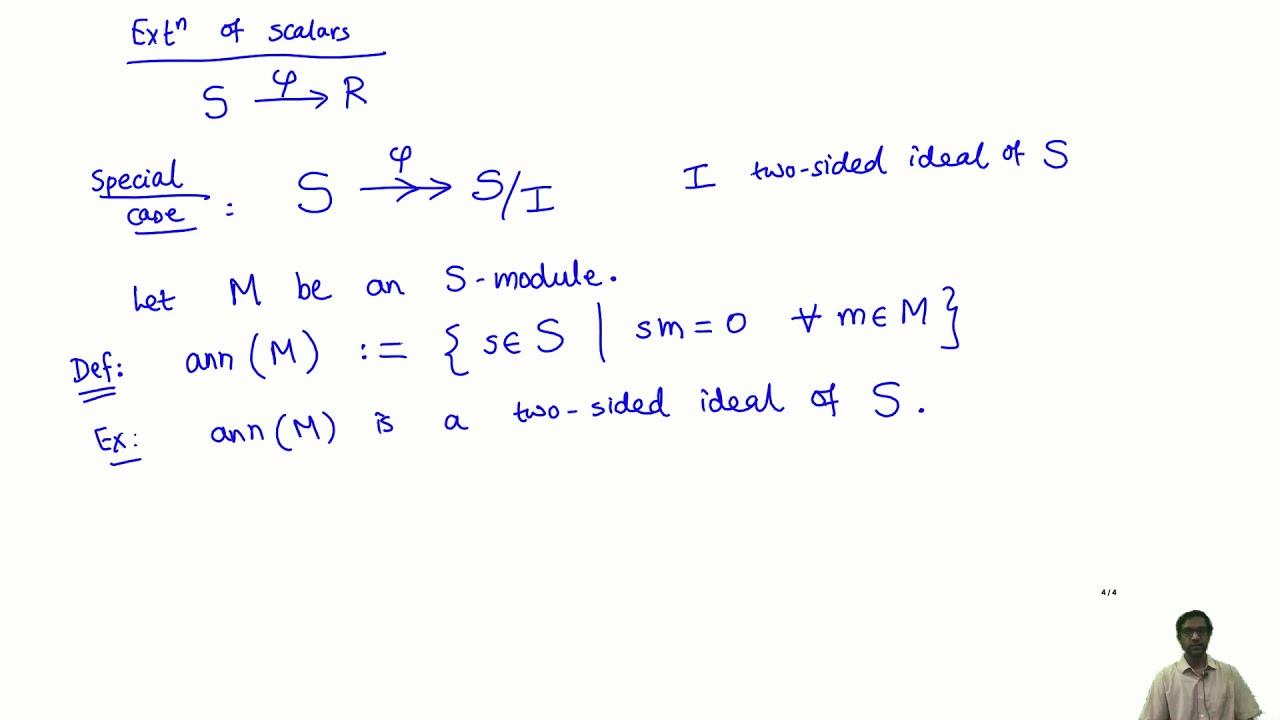 Extⁿ of scalars
S φ→ R
Special case : S φ↠ S/I I two-sided ideal of S
Let M be an S-module.
Def: ann(M) := { s∈S | sm = 0 ∀ m∈M }
Ex: ann(M) is a two-sided ideal of S.
4/4